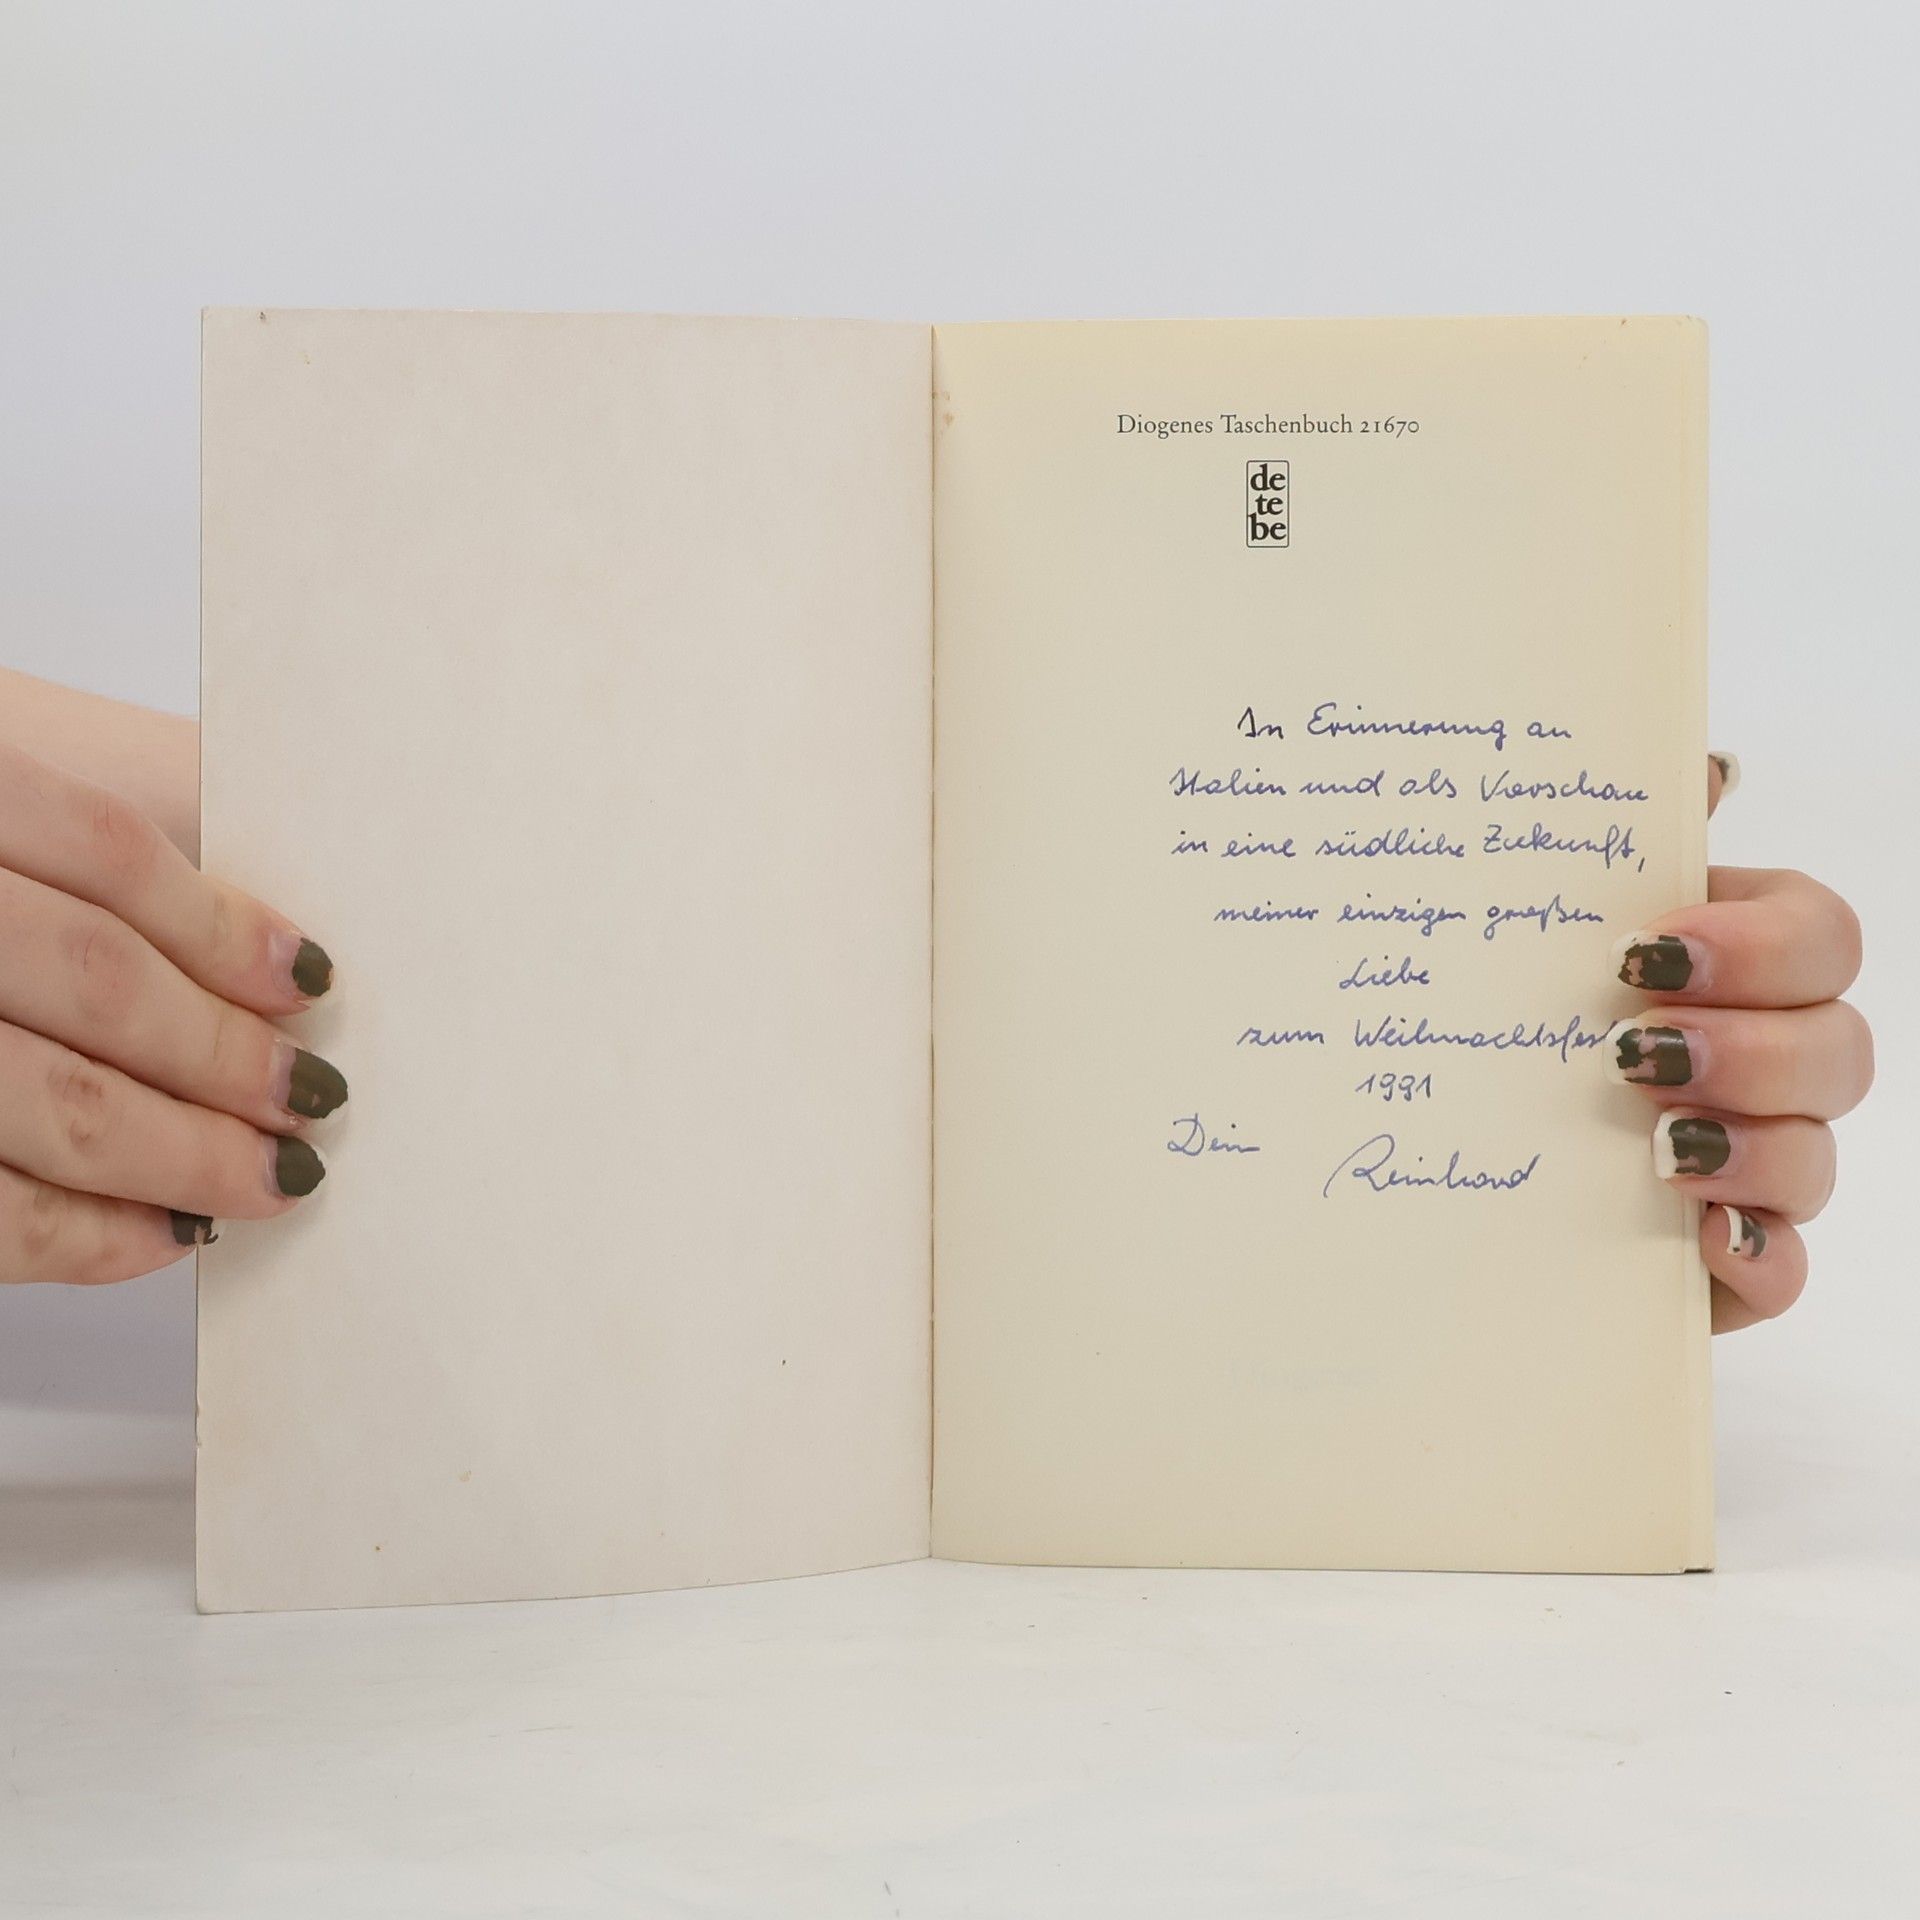 Diogenes Taschenbuch 21670
de
te
be
In Erinnerung an
Italien und als Vorschau
in eine südliche Zukunft,
meiner einzigen großen
Liebe
zum Weihnachtsfest
1991
Dein Reinhard